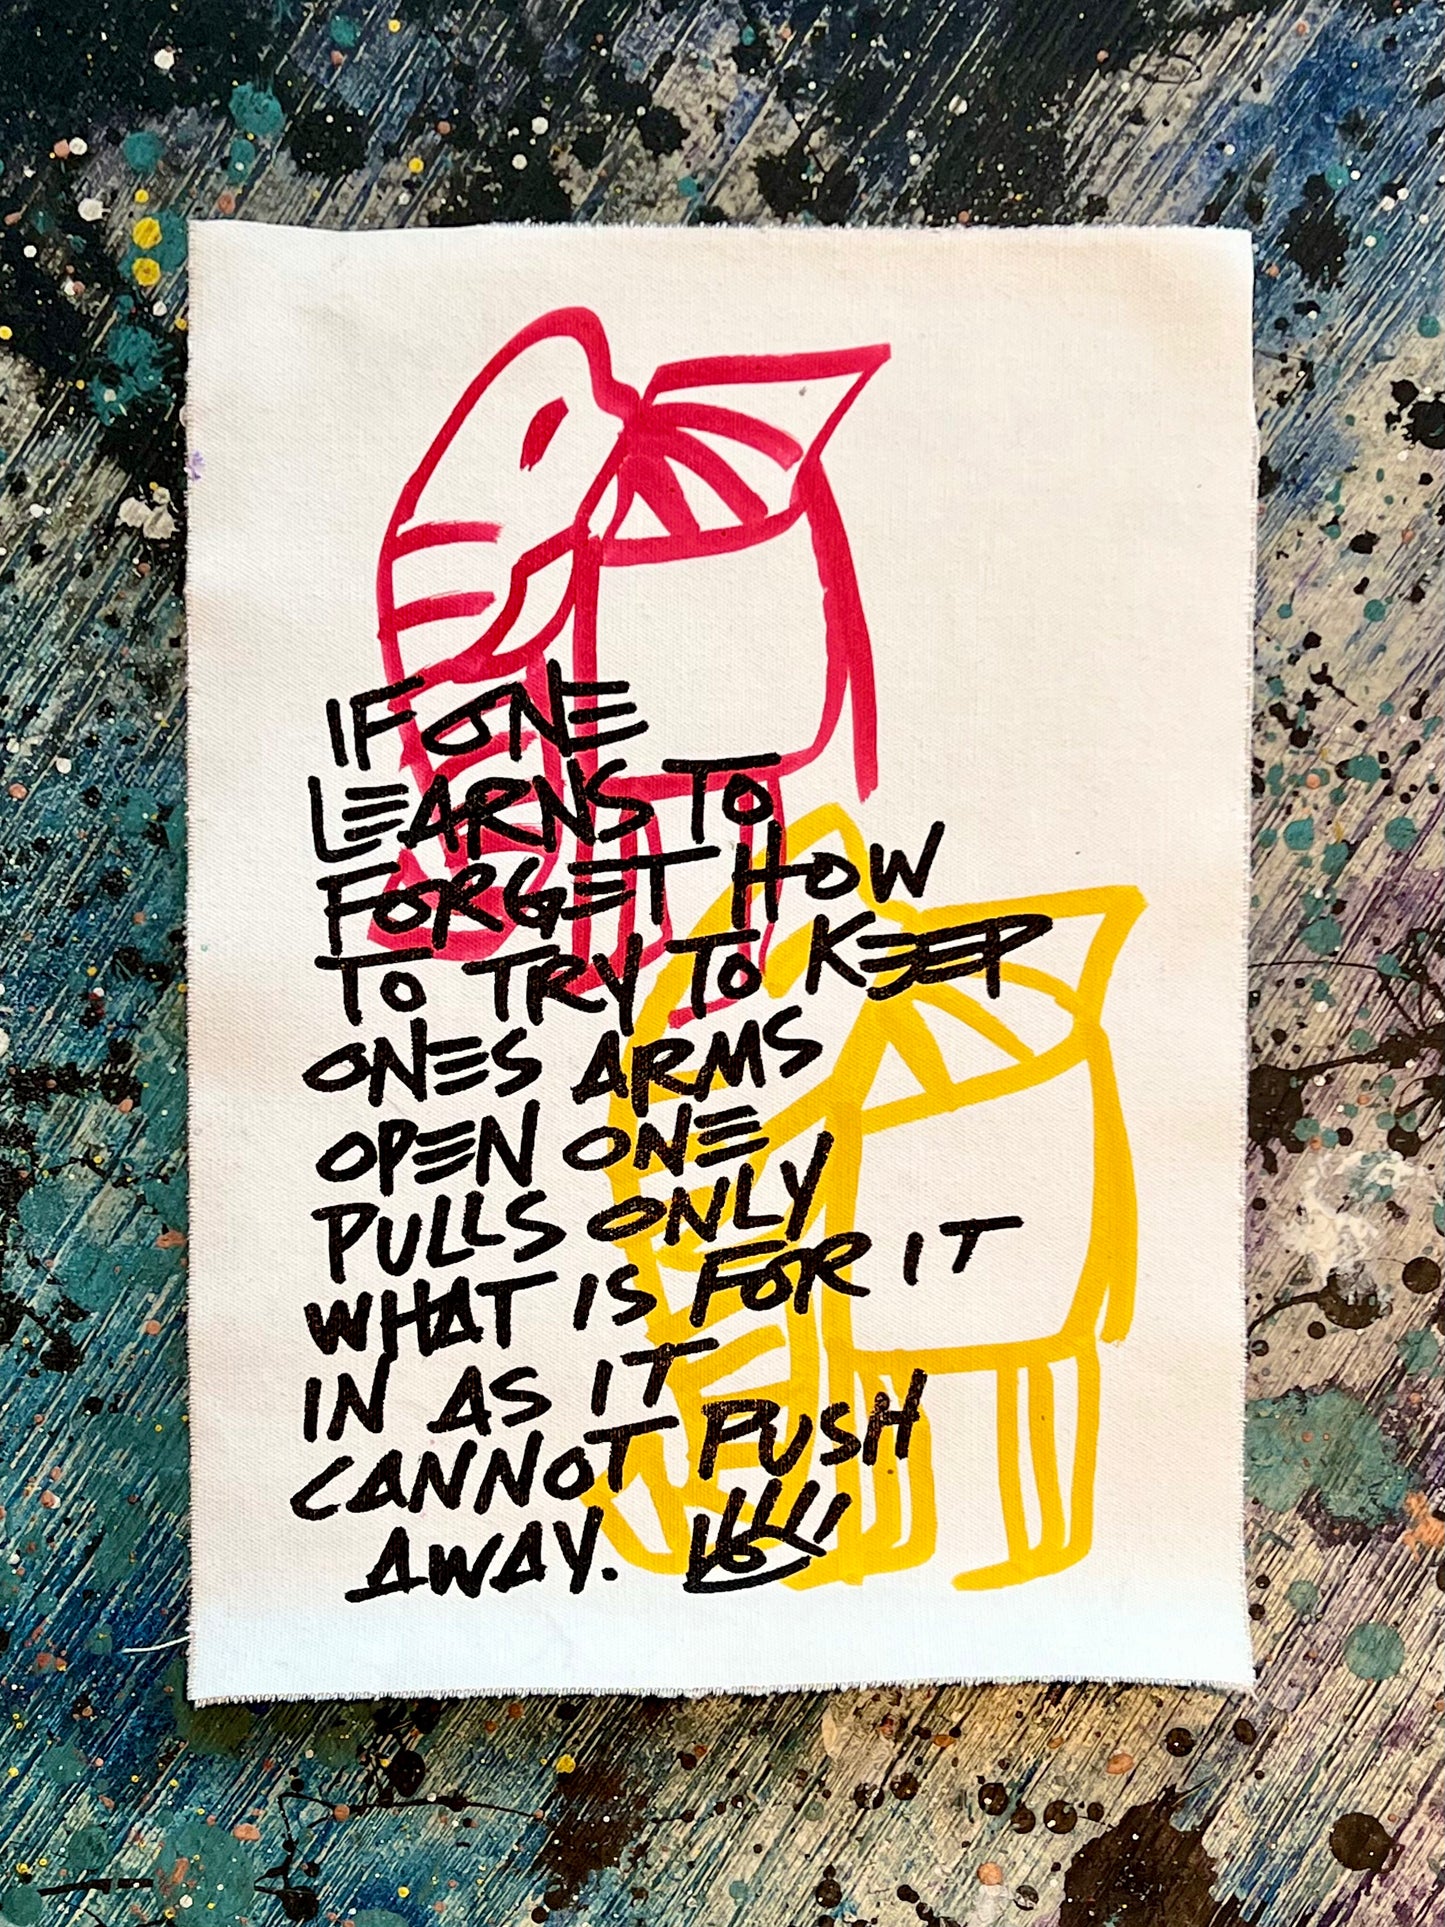 IF ONE
LEARNS TO
FORGET HOW
TO TRY TO KEEP
ONES ARMS
OPEN ONE
PULLS ONLY
WHAT IS FOR IT
IN AS IT
CANNOT PUSH
AWAY.